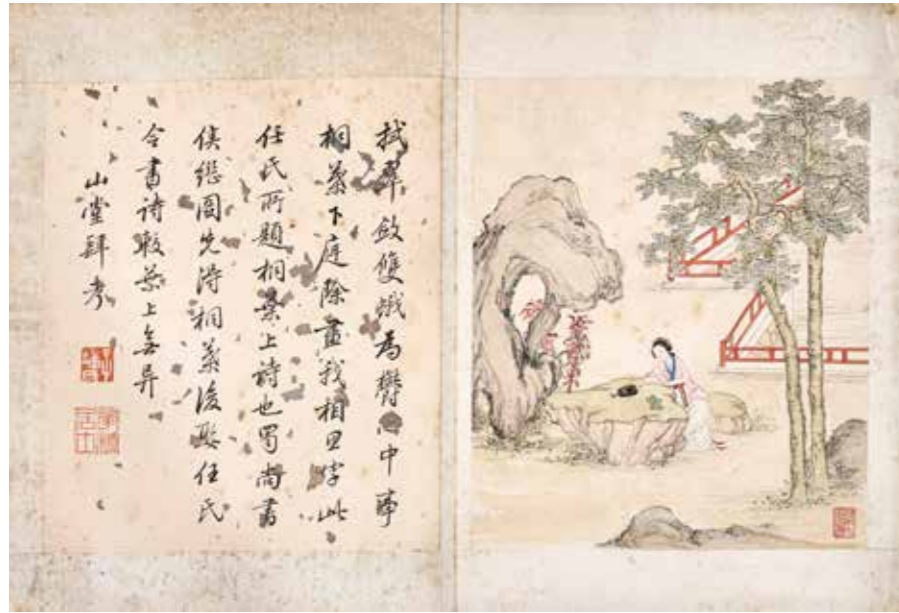 拭翠斂雙蛾為鬱心中事
桐葉下庭除書我相思字此
任氏所題桐葉上詩也蜀尚書
侯繼圖先得桐葉後娶任氏
令書詩較葉上無異
山堂肆考